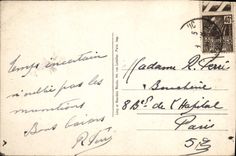 Temps incertain
n'oublie pas les
munitions
Bons baisers
R. Ferri
Madame R. Ferri
Boucherie
8 Bd de l'Hopital
Paris
5e